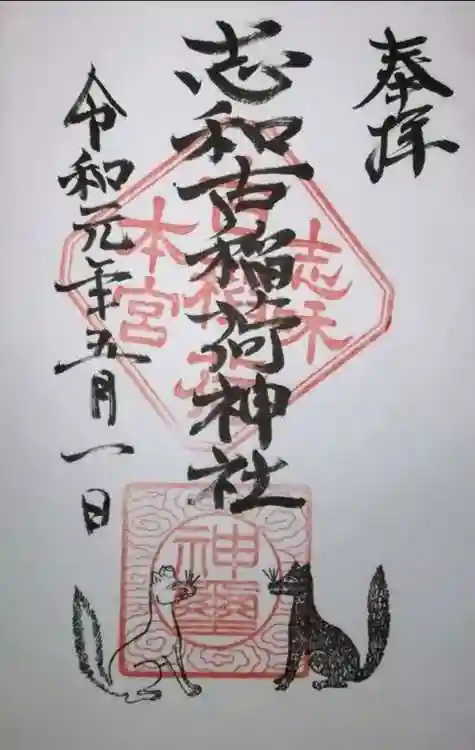 奉拝
志和古稲荷神社
令和元年五月一日
志和
古稲荷
本宮
神璽